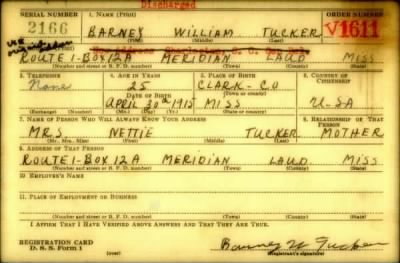 Discharged
SERIAL NUMBER 1. NAME (Print) ORDER NUMBER
2166 BARNEY WILLIAM TUCKER V1611
(First) (Middle) (Last)
ROUTE 1-BOX 12A MERIDIAN LAUD MISS
(Number and street or R. F. D. number) (Town) (County) (State)
3. TELEPHONE 4. AGE IN YEARS 5. PLACE OF BIRTH 6. COUNTRY OF CITIZENSHIP
None 25 CLARK-CO
DATE OF BIRTH (Town or county)
APRIL 30th 1915 MISS U-SA
(Exchange) (Number) (Mo.) (Day) (Yr.) (State or country)
7. NAME OF PERSON WHO WILL ALWAYS KNOW YOUR ADDRESS 8. RELATIONSHIP OF THAT PERSON
MRS NETTIE TUCKER MOTHER
(Mr., Mrs., Miss) (First) (Middle) (Last)
9. ADDRESS OF THAT PERSON
ROUTE 1-BOX 12A MERIDIAN LAUD. MISS
(Number and street or R. F. D. number) (Town) (County) (State)
10. EMPLOYER'S NAME
11. PLACE OF EMPLOYMENT OR BUSINESS
(Number and street or R. F. D. number) (Town) (County) (State)
I AFFIRM THAT I HAVE VERIFIED ABOVE ANSWERS AND THAT THEY ARE TRUE.
REGISTRATION CARD
D. S. S. Form 1 (over) Barney W Tucker
(Registrant's signature)